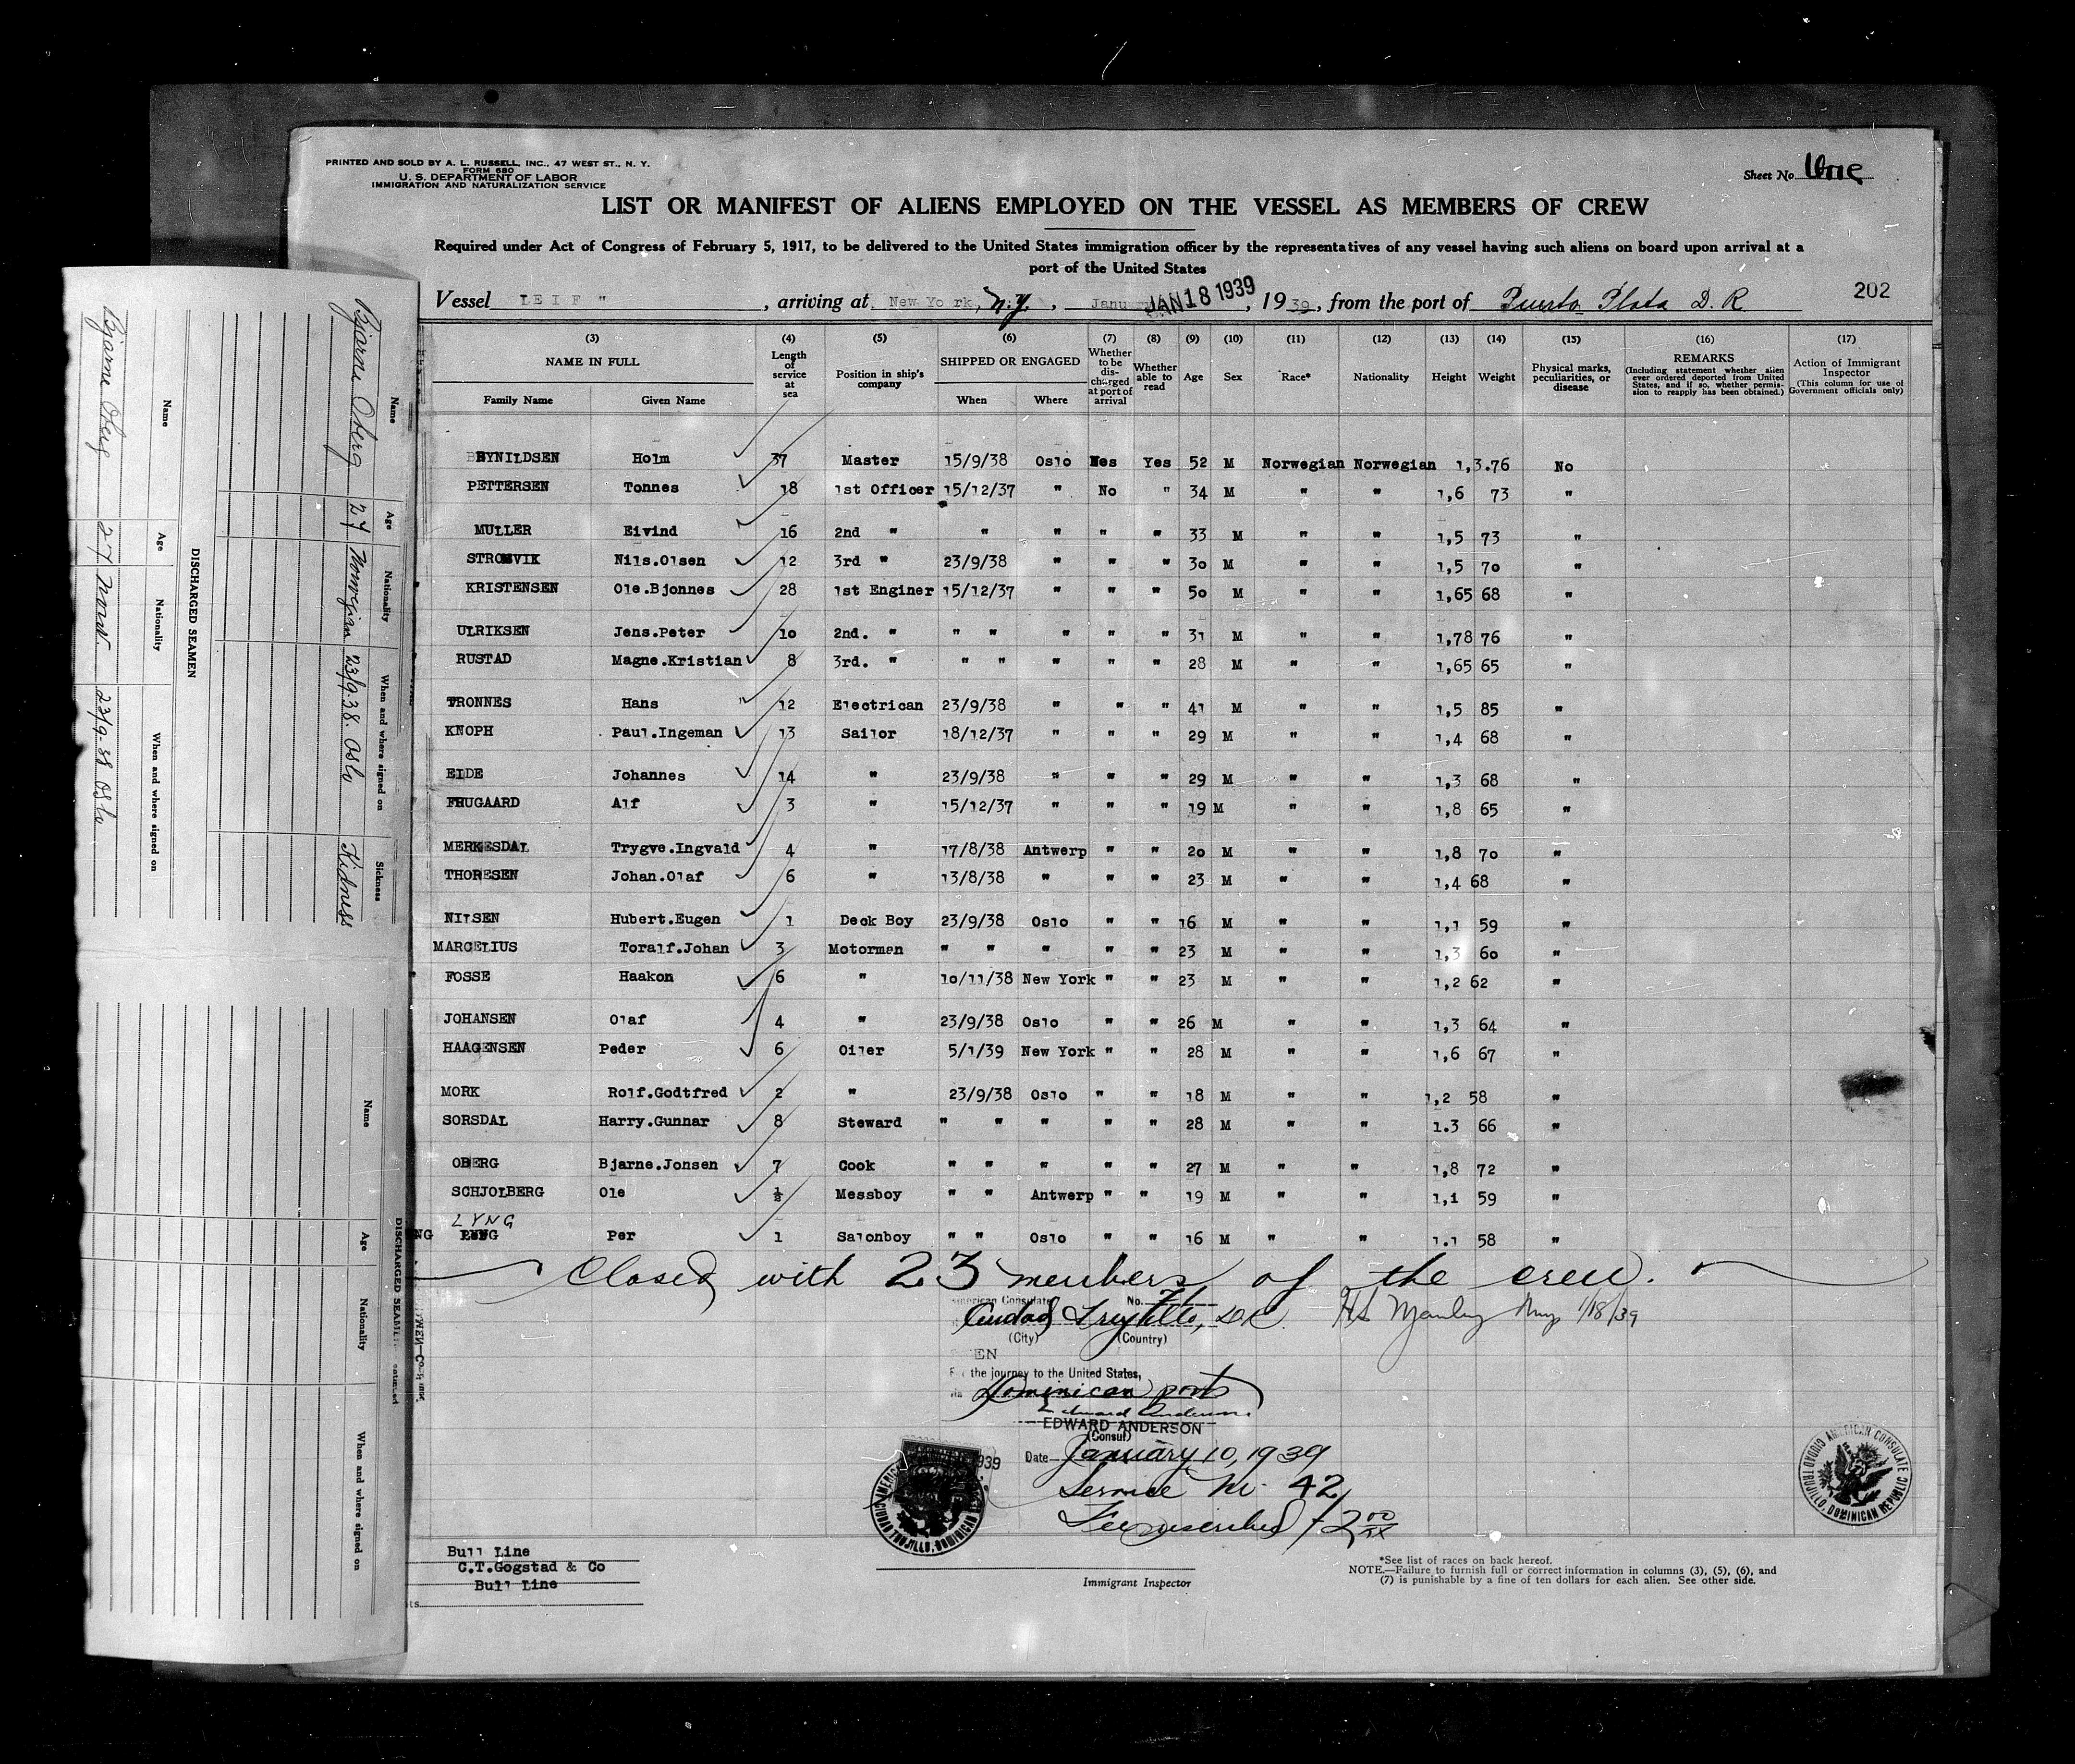 PRINTED AND SOLD BY A. L. RUSSELL, INC., 47 WEST ST., N. Y.
FORM 680
U. S. DEPARTMENT OF LABOR
IMMIGRATION AND NATURALIZATION SERVICE
Sheet No. One
LIST OR MANIFEST OF ALIENS EMPLOYED ON THE VESSEL AS MEMBERS OF CREW
Required under Act of Congress of February 5, 1917, to be delivered to the United States immigration officer by the representatives of any vessel having such aliens on board upon arrival at a
port of the United States
202
Vessel LEIF ", arriving at New York, N.Y., JAN 18 1939, 1939, from the port of Puerto Plata D. R
(3) NAME IN FULL Family Name Given Name
(4) Length of service at sea
(5) Position in ship's company
(6) SHIPPED OR ENGAGED When Where
(7) Whether to be discharged at port of arrival
(8) Whether able to read
(9) Age
(10) Sex
(11) Race*
(12) Nationality
(13) Height
(14) Weight
(15) Physical marks, peculiarities, or disease
(16) REMARKS (Including statement whether alien ever ordered deported from United States, and if so, whether permission to reapply has been obtained.)
(17) Action of Immigrant Inspector (This column for use of Government officials only)
BRYNILDSEN Holm 37 Master 15/9/38 Oslo Yes 52 M Norwegian Norwegian 1,3.76 No
PETTERSEN Tonnes 18 1st Officer 15/12/37 " No " 34 M " " 1,6 73 "
MULLER Eivind 16 2nd " " " " " 33 M " " 1,5 73 "
STROMVIK Nils.Olsen 12 3rd " 23/9/38 " " " 30 M " " 1,5 70 "
KRISTENSEN Ole.Bjonnes 28 1st Enginer 15/12/37 " " " 50 M " " 1,65 68 "
ULRIKSEN Jens.Peter 10 2nd. " " " " " " 31 M " " 1,78 76 "
RUSTAD Magne.Kristian 8 3rd. " " " " " " 28 M " " 1,65 65 "
TRONNES Hans 12 Electrican 23/9/38 " " " 41 M " " 1,5 85 "
KNOPH Paul.Ingeman 13 Sailor 18/12/37 " " " 29 M " " 1,4 68 "
EIDE Johannes 14 " 23/9/38 " " " 29 M " " 1,3 68 "
FRUGAARD Alf 3 " 15/12/37 " " " 19 M " " 1,8 65 "
MERKESDAL Trygve.Ingvald 4 " 17/8/38 Antwerp " " 20 M " " 1,8 70 "
THORESEN Johan.Olaf 6 " 13/8/38 " " " 23 M " " 1,4 68 "
NILSEN Hubert.Eugen 1 Deck Boy 23/9/38 Oslo " " 16 M " " 1,1 59 "
MARCELIUS Toralf.Johan 3 Motorman " " " " " 23 M " " 1,3 60 "
FOSSE Haakon 6 " 10/11/38 New York " " 23 M " " 1,2 62 "
JOHANSEN Olaf 4 " 23/9/38 Oslo " " 26 M " " 1,3 64 "
HAAGENSEN Peder 6 Oiler 5/1/39 New York " " 28 M " " 1,6 67 "
MORK Rolf.Godtfred 2 " 23/9/38 Oslo " " 18 M " " 1,2 58 "
SORSDAL Harry.Gunnar 8 Steward " " " " " 28 M " " 1.3 66 "
OBERG Bjarne.Jonsen 7 Cook " " " " " 27 M " " 1,8 72 "
SCHJOLBERG Ole ½ Messboy " " Antwerp " " 19 M " " 1,1 59 "
LYNG
Per 1 Salonboy " " Oslo " " 16 M " " 1.1 58 "
Closed with 23 members of the crew.
American Consulate No.
Ciudad Trujillo, D.R.
(City) (Country)
HS Manley 1/18/39
the journey to the United States,
via Dominican ports
Edward Anderson
EDWARD ANDERSON
(Consul)
Date January 10, 1939
Service No. 42
Fee prescribed $2 00
AMERICAN CONSULATE CIUDAD TRUJILLO, DOMINICAN REPUBLIC
Bull Line
C.T.Gogstad & Co
Bull Line
Immigrant Inspector
*See list of races on back hereof.
NOTE.—Failure to furnish full or correct information in columns (3), (5), (6), and
(7) is punishable by a fine of ten dollars for each alien. See other side.
Name Age Nationality When and where signed on Sickness
Bjarne Oberg 27 Norwegian 23/9.38. Oslo Kidness
DISCHARGED SEAMEN
Name Age Nationality When and where signed on
Bjarne Oberg 27 Norw. 23/9-38 Oslo
Name Age Nationality When and where signed on